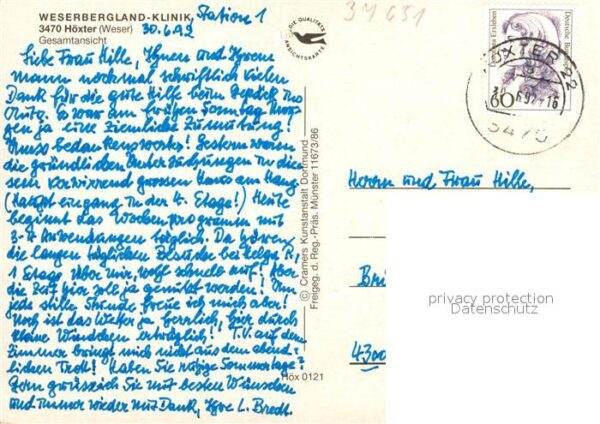 WESERBERGLAND-KLINIK, Station 1
3470 Höxter (Weser) 30.6.92
Gesamtansicht
Liebe Frau Hille, Ihnen und Ihrem
Mann nochmal schriftlich vielen
Dank für die gute Hilfe beim Gepäck ins
Auto. Es war am frühen Sonntag Mor-
gen ja eine ziemliche Zumutung!
Umso dankenswerter! Gestern waren
die gründlichen Untersuchungen in die-
sem verwirrend grossen Haus am Hang
(Haupteingang in der 4. Etage!) Heute
beginnt das Wochenprogramm mit
3-4 Anwendungen täglich. Da hören
die langen täglichen Besuche bei Helga K,
1 Etage über mir, wohl schnell auf! Aber
die Zeit hier soll ja genützt werden! Um
jede stille Stunde freue ich mich aber!
Noch ist das Wetter ja herrlich, hier durch
kleine Windchen erträglich! T.V. auf dem
Zimmer bringt mich nicht aus dem abend-
lichen Trott! Haben Sie ruhige Sommertage?
Gern grüsse ich Sie mit besten Wünschen
und immer wieder mit Dank, Ihre L. Bredt.
DIE QUALITÄTS
ANSICHTSKARTE
© Cramers Kunstanstalt Dortmund
Freigeg. d. Reg.-Präs. Münster 11673/86
Höx 0121
34631
Deutsche Bundes
Erxleben
60
HÖXTER 22
30.6.92-16
3470
Herrn und Frau Hille,
Brü
4300
privacy protection
Datenschutz